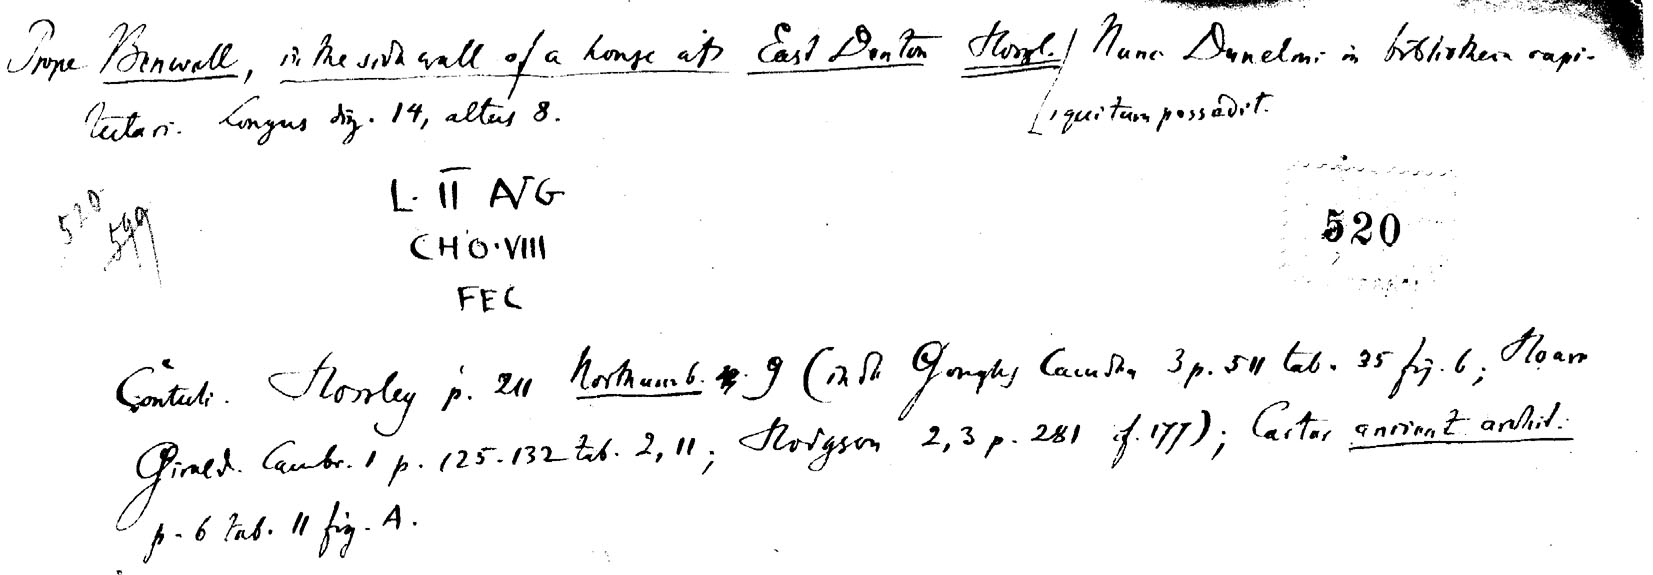 Prope Benwell, in the side wall of a house at East Denton Horsl. / Nunc Dunelmi in bibliotheca capi-
tulari. Longus dig. 14, altus 8. [, qui tum possedit.
520
599
L · II AVG
CHO · VIII
FEC
520
Contuli. Horsley p. 211 Northumb. 9 (inde Goughs Camden 3 p. 511 tab. 35 fig. 6; Hoare
Girald. Cambr. 1 p. 125-132 tab. 2, 11; Hodgson 2, 3 p. 281 cf. 177); Carter ancient archit.
p. 6 tab. 11 fig. A.